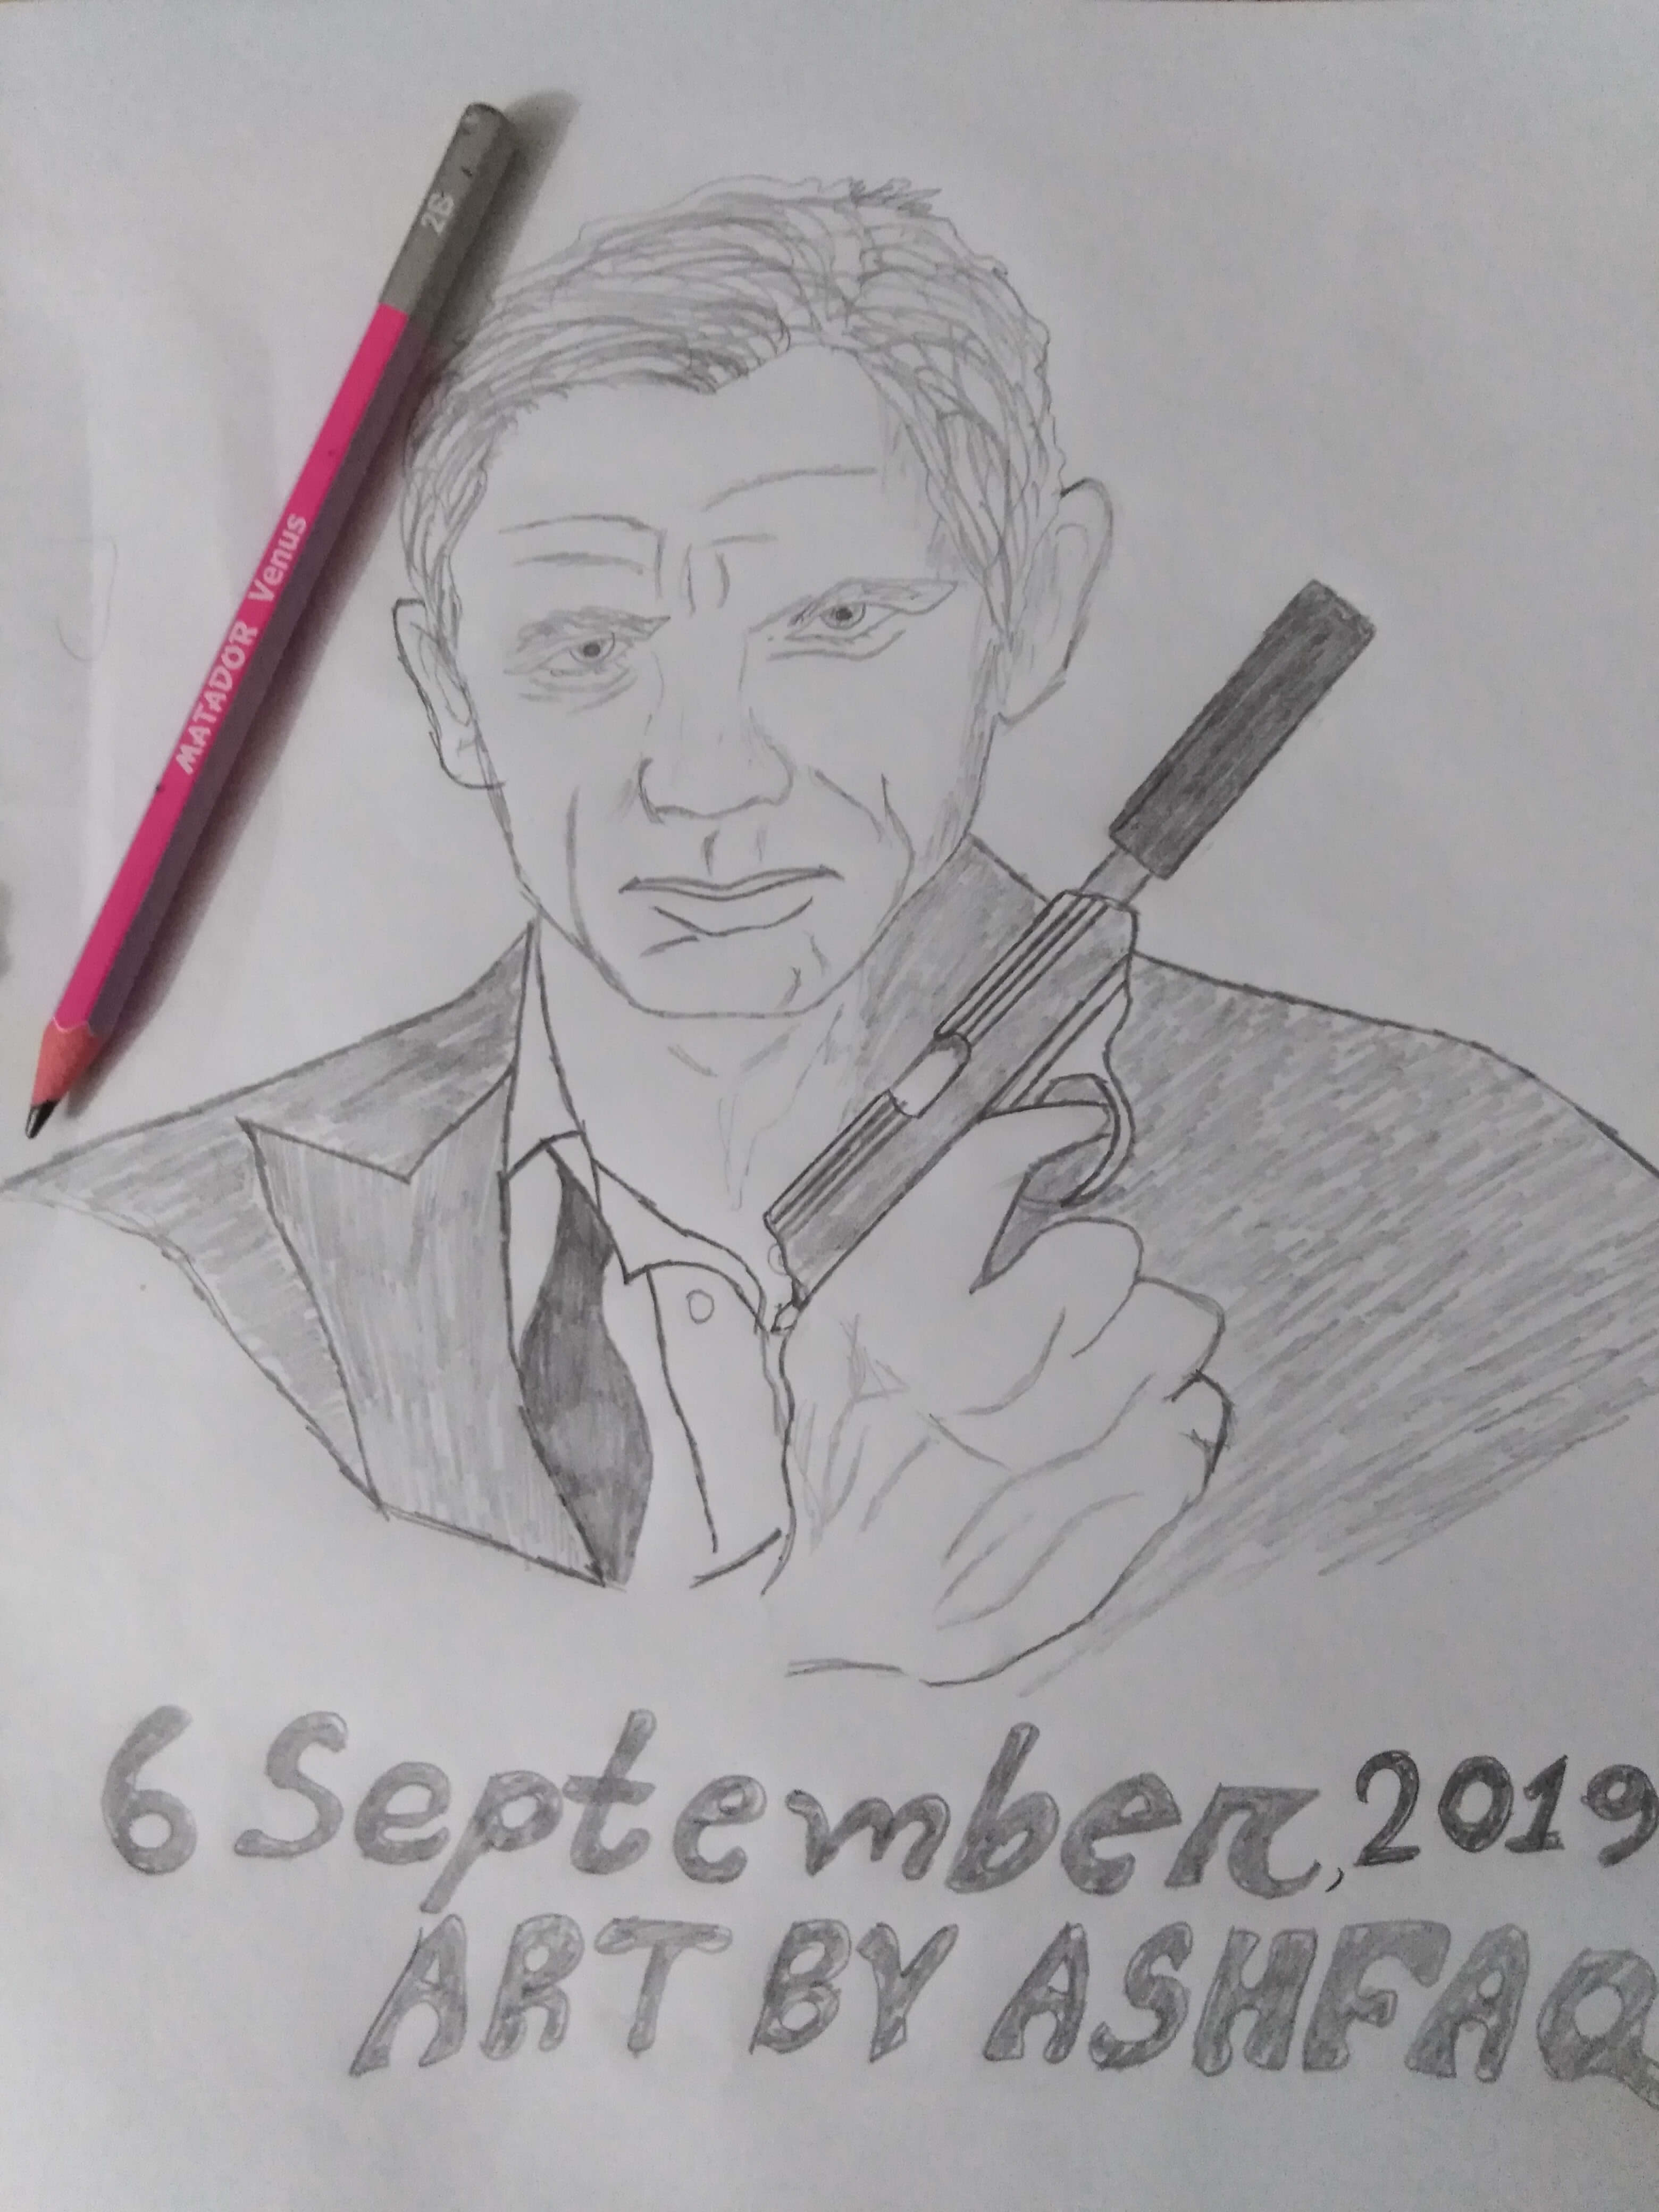 2B
MATADOR Venus
6 September, 2019
ART BY ASHFAQ